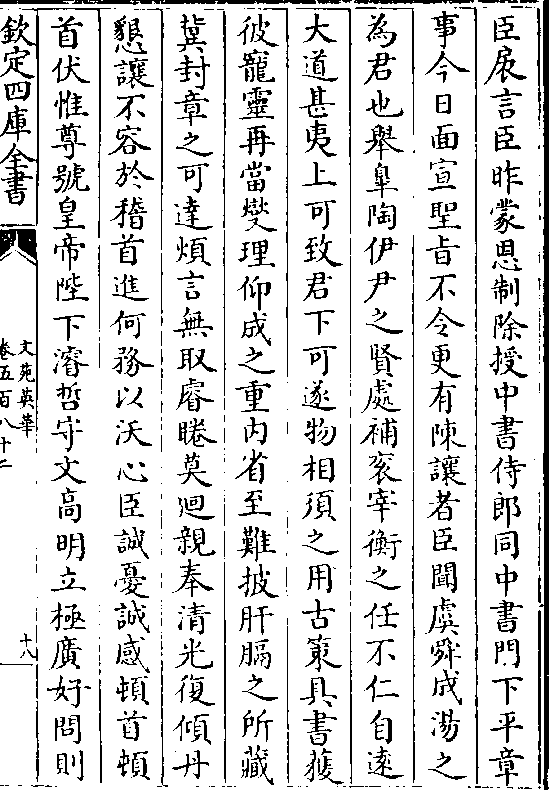 臣扆言臣昨蒙恩制除授中書侍郎同中書門下平章
事今日面宣聖旨不令更有陳讓者臣聞虞舜成湯之
為君也舉皐陶伊尹之賢處補衮宰衡之任不仁自逺
大道甚夷上可致君下可遂物相須之用古策具書獲
彼寵靈再當燮理仰成之重内省至難披肝膈之所藏
冀封章之可達煩言無取睿睠莫廻親奉清光復傾丹
懇讓不容於稽首進何務以沃心臣誠憂誠感頓首頓
首伏惟尊號皇帝陛下濬哲守文高明立極廣好問則
欽定四庫全書
文苑英華
卷五百八十二
十八